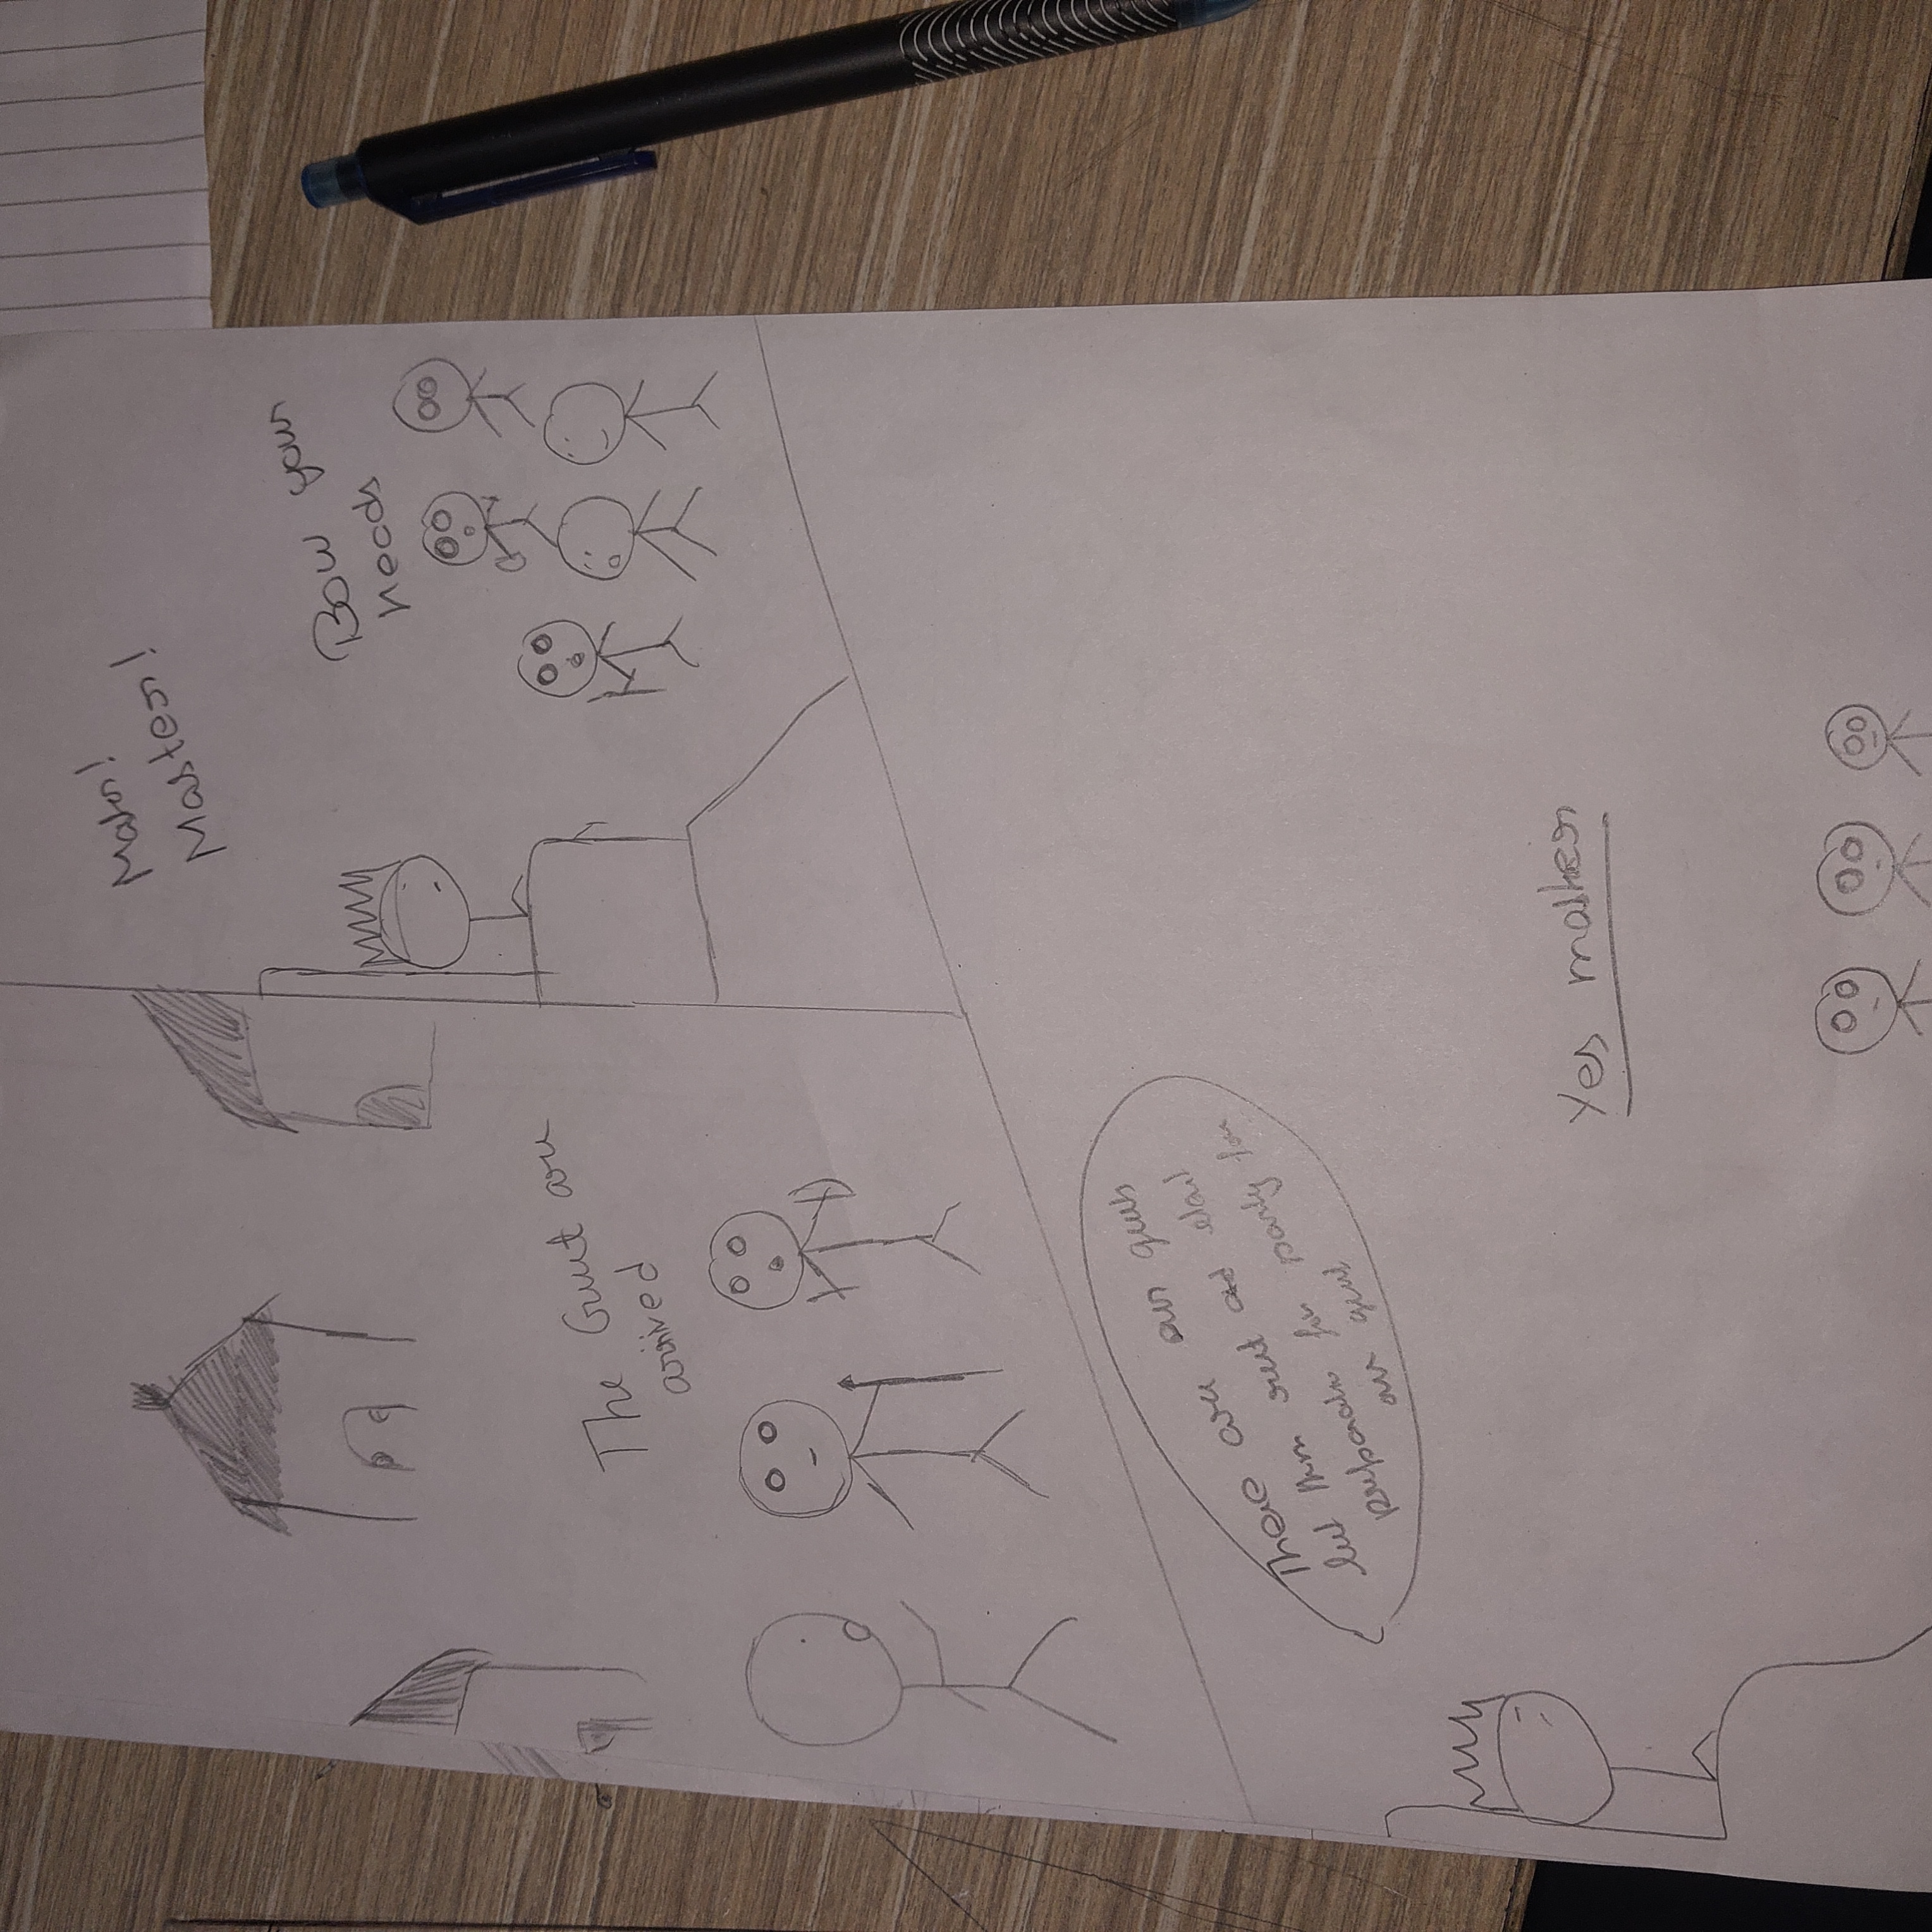 The Guut are
arrived
Mator!
Master!
Bow your
heads
There are our guub
let them rest and start
preparation for party for
our guest
Yes master